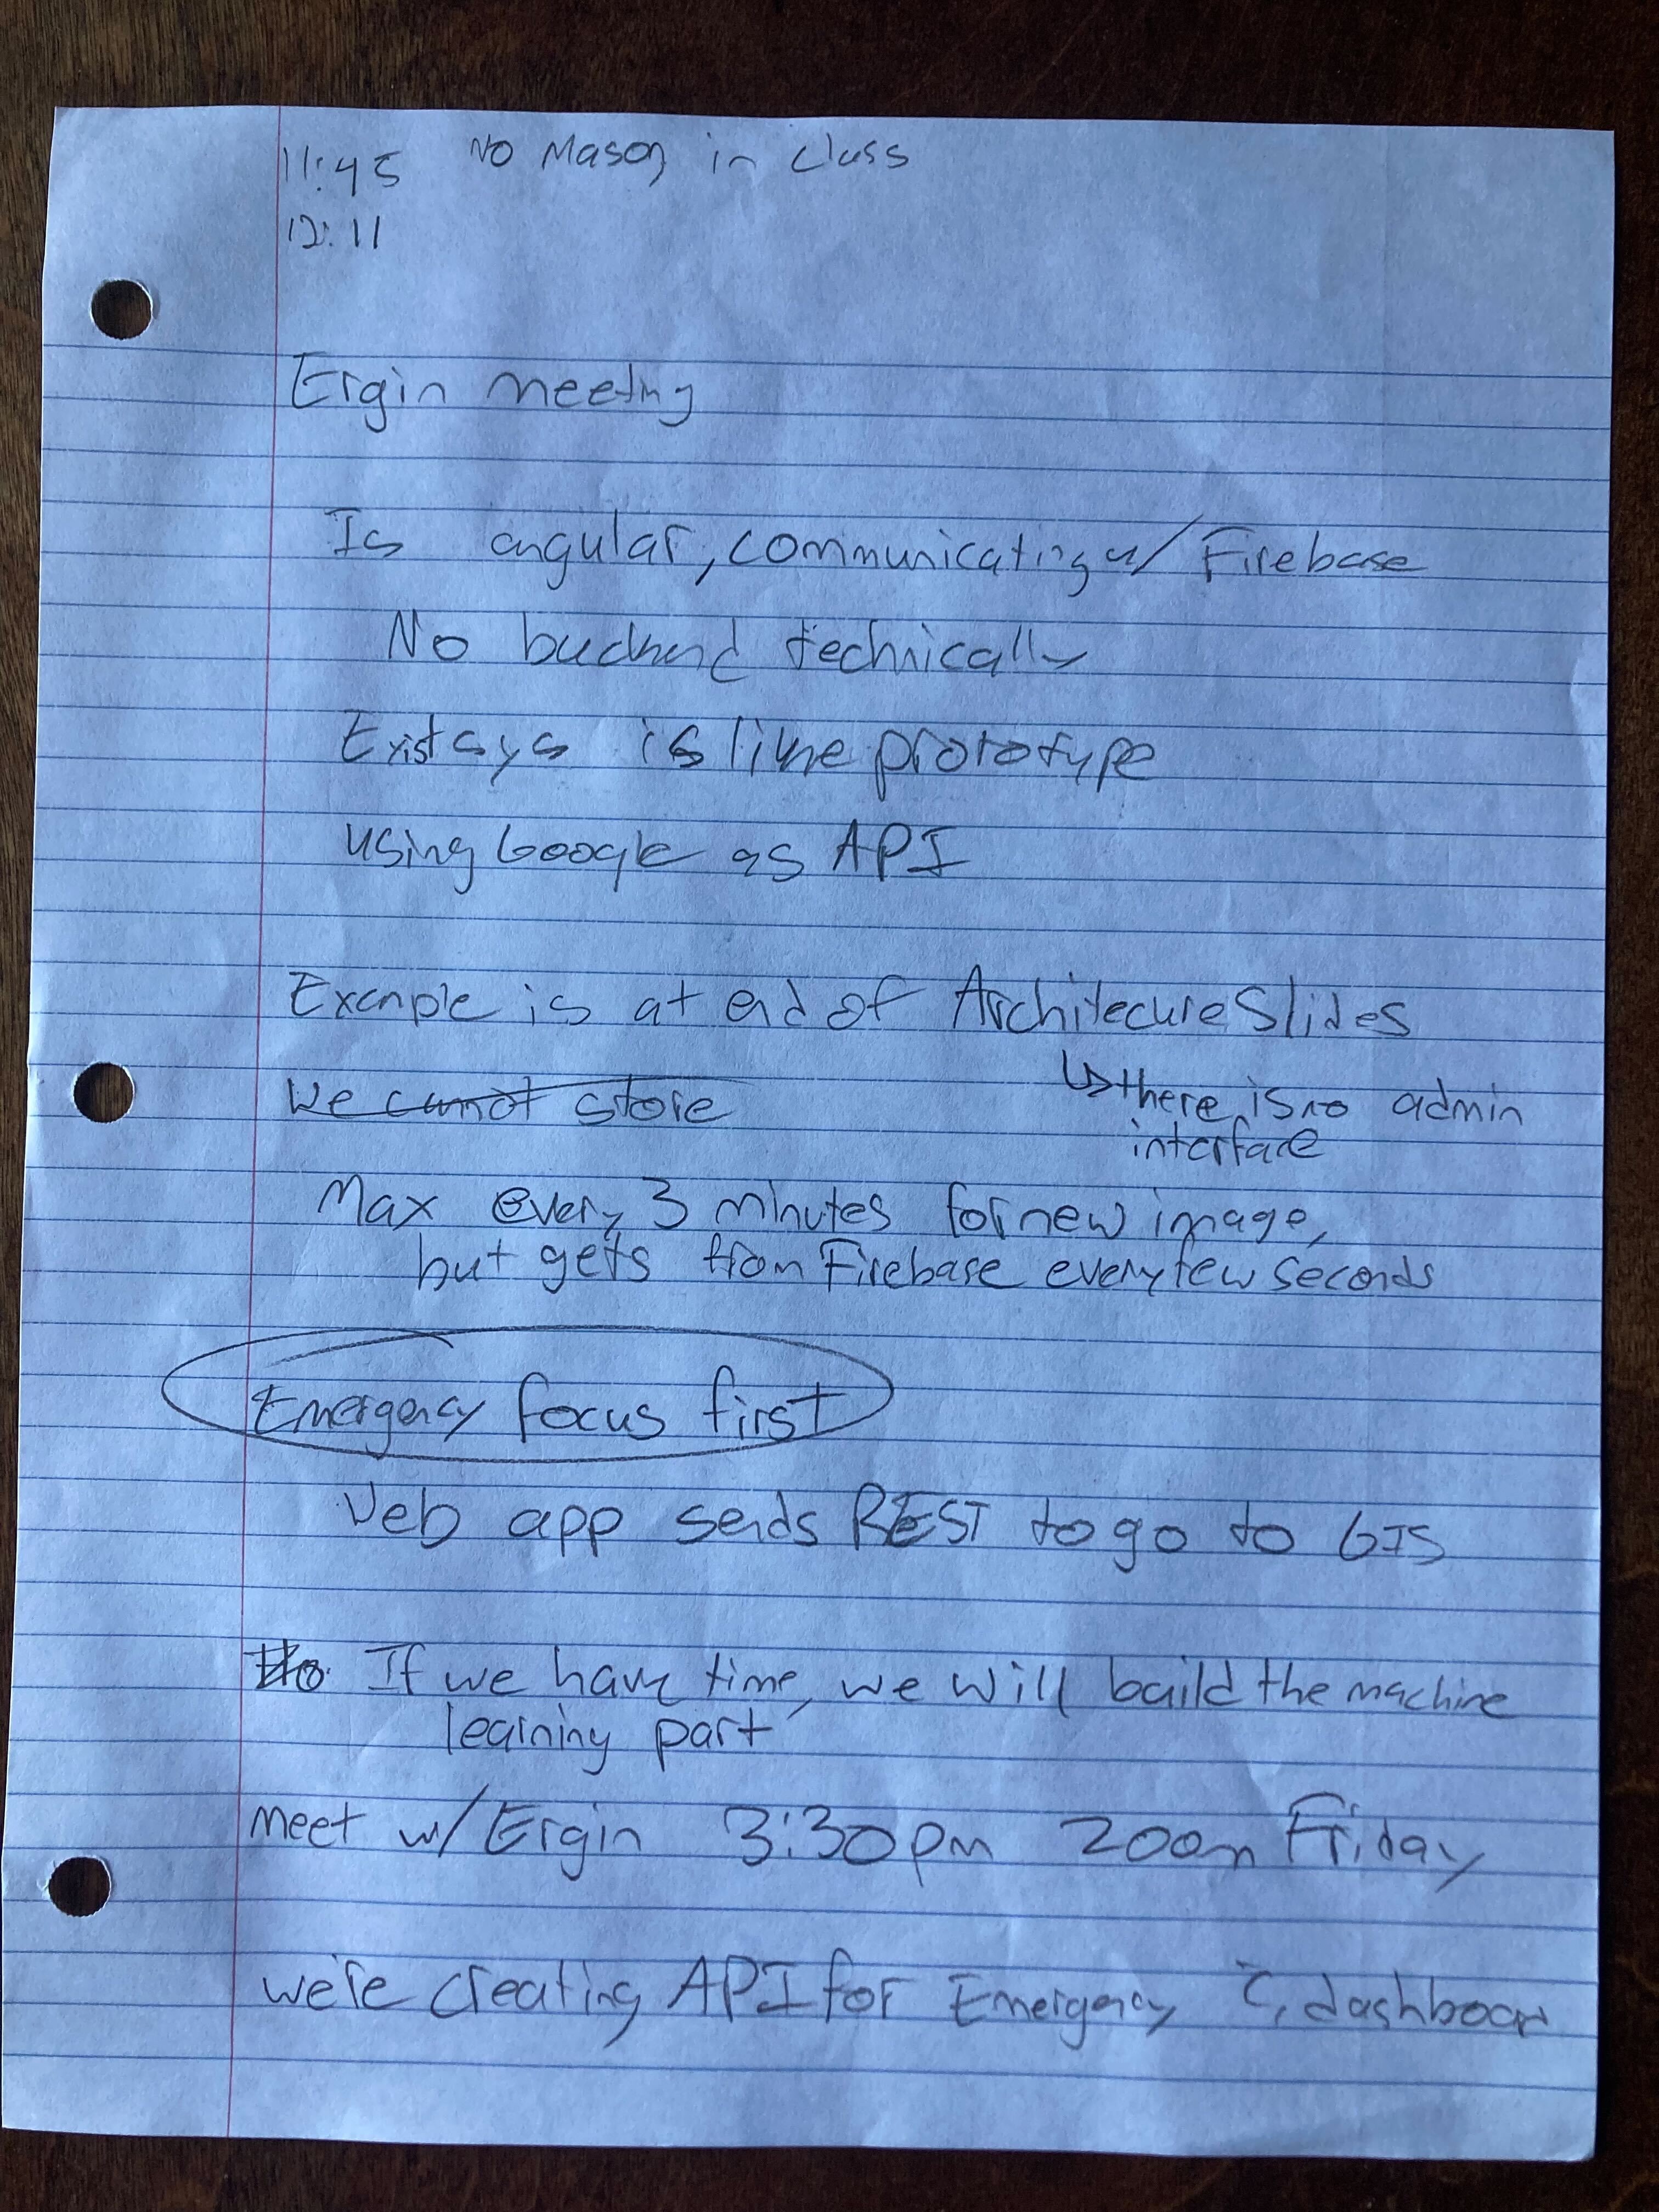 11:45 No Mason in class
12:11
Ergin meeting
Is angular, communicating w/ Firebase
No backend technically
Exist sys is like prototype
using Google as API
Example is at end of Architecure Slides
We cannot store
↳ there is no admin
interface
Max every 3 minutes for new image,
but gets from Firebase every few seconds
Emergency focus first
Web app sends REST to go to GIS
If we have time, we will build the machine
learning part
Meet w/ Ergin 3:30pm Zoom Friday
we're creating API for Emergency dashboar